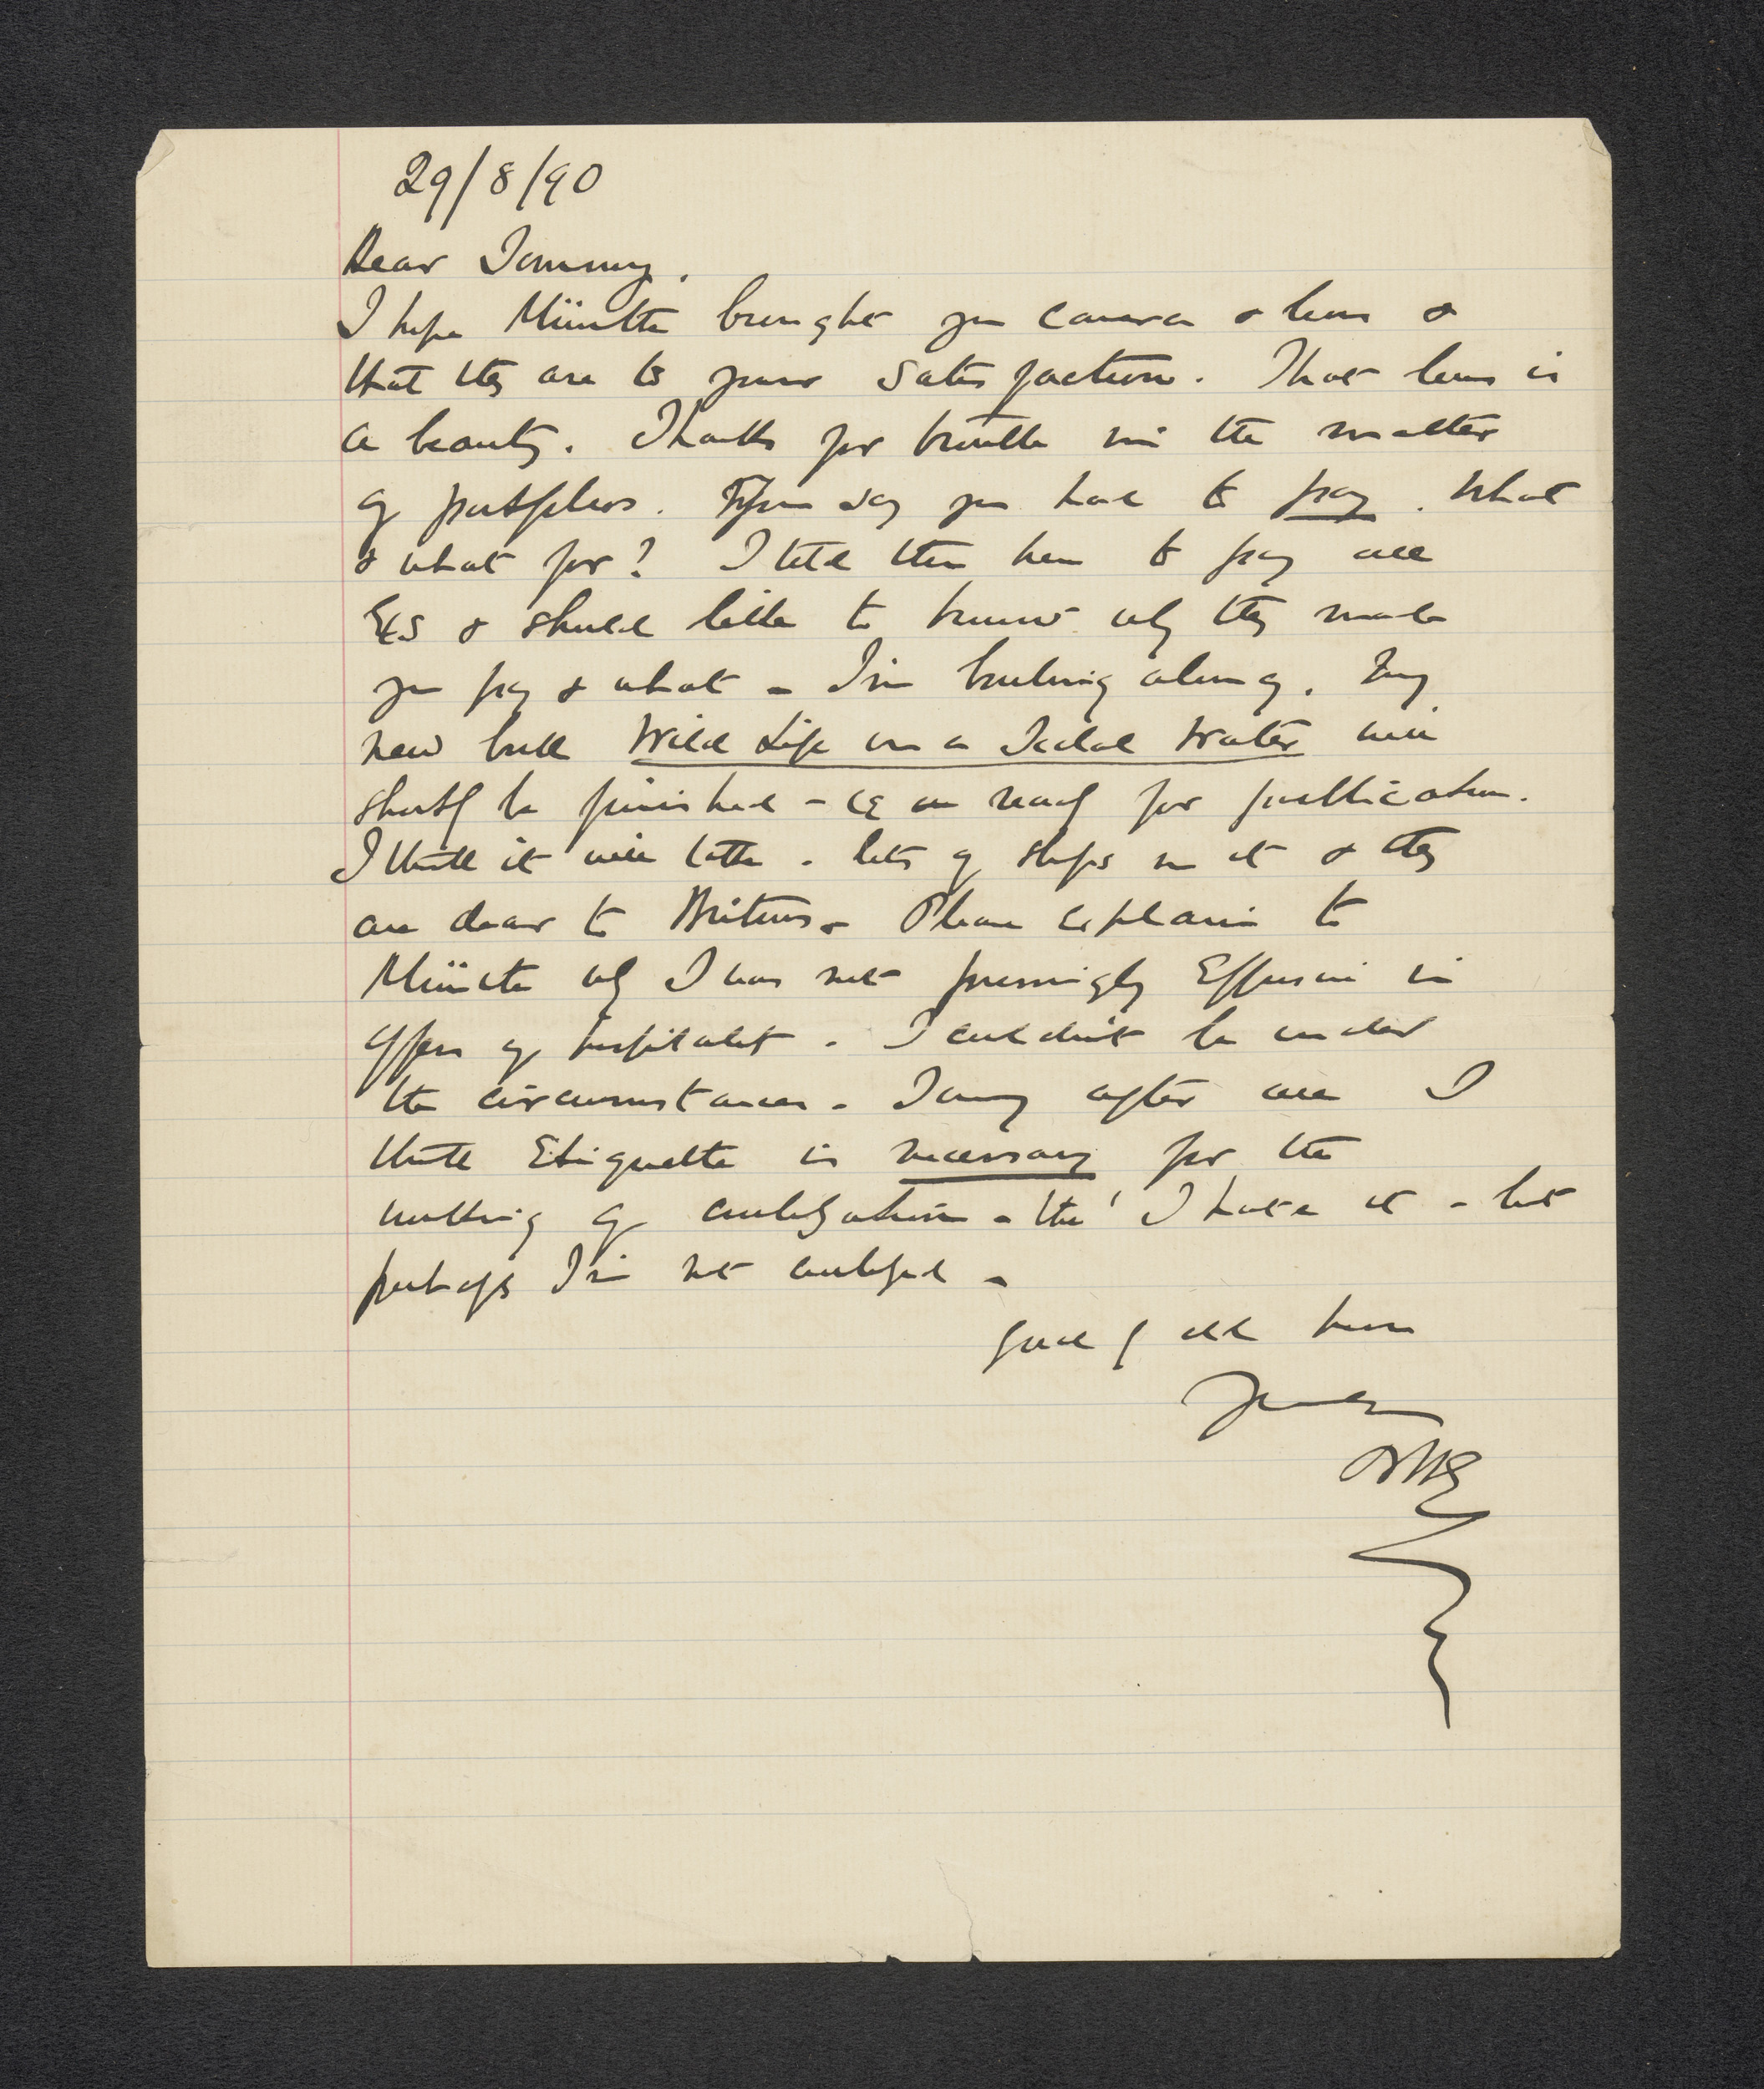 29/8/90
Dear Tommy.
I hope Müntte brought you camera & lens &
that they are to your satisfaction. That lens is
a beauty. Thanks for trouble in the matter
of portfolios. you say you had to pay. What
& what for? I told them here to pay all
Exs & should like to know why they made
you pay & what - I'm booking along. My
new book Wild Life on a Tidal Water will
shortly be finished - ie on ready for publication.
I think it will take - lots of ships in it & they
are dear to Britons - Please explain to
why I was not pressingly effusive in
offers of hospitality - I couldn't be under
the circumstances - Tommy after all I
think Etiquette is necessary for the
working of civilization - tho' I hate it - but
perhaps I'm not civilized -
Good of old
Yours
PHE